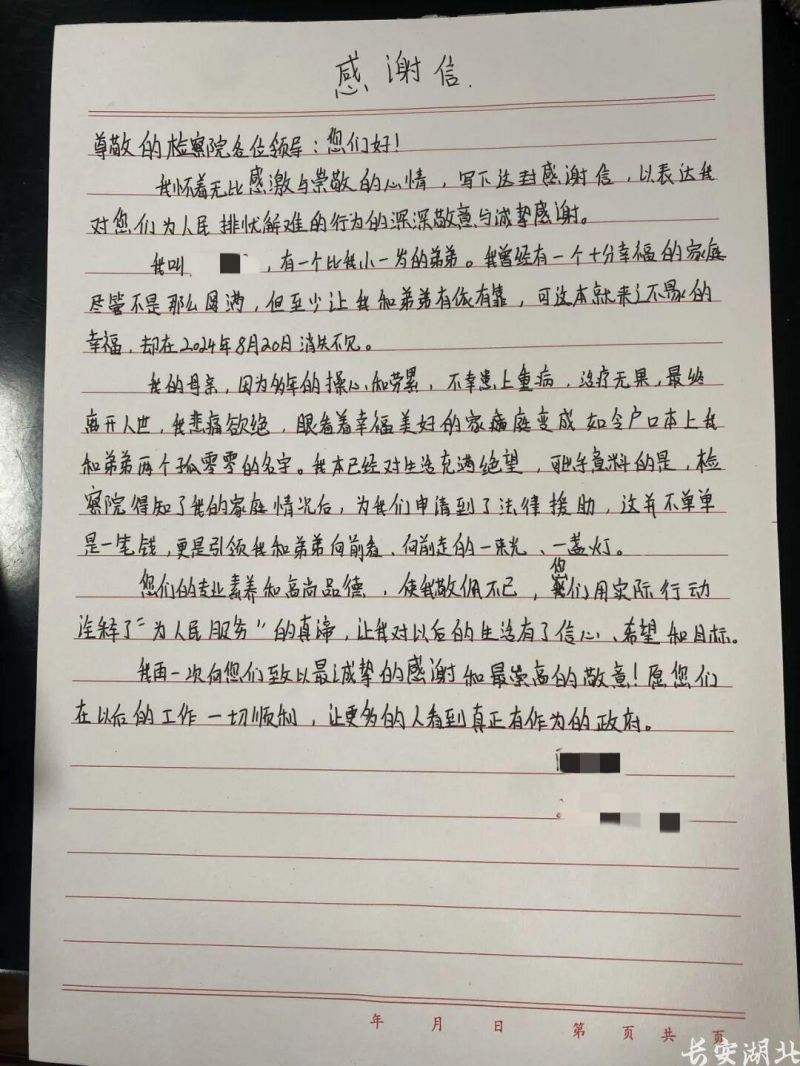 感谢信.
尊敬的检察院各位领导：您们好！
我怀着无比感激与崇敬的心情，写下这封感谢信，以表达我
对您们为人民排忧解难的行为的深深敬意与诚挚感谢。
我叫 ，有一个比我小一岁的弟弟。我曾经有一个十分幸福的家庭
尽管不是那么圆满，但至少让我和弟弟有依有靠，可这本就来之不易的
幸福，却在2024年8月20日消失不见。
我的母亲，因为多年的操心和劳累，不幸患上重病，治疗无果，最终
离开人世，我悲痛欲绝，眼看着幸福美好的家庭变成如今户口本上我
和弟弟两个孤零零的名字。我本已经对生活充满绝望，可出乎意料的是，检
察院得知了我的家庭情况后，为我们申请到了法律援助，这并不单单
是一笔钱，更是引领我和弟弟向前看、向前走的一束光、一盏灯。
您们的专业素养和高尚品德，使我敬佩不已，您们用实际行动
诠释了“为人民服务”的真谛，让我对以后的生活有了信心、希望和目标。
我再一次向您们致以最诚挚的感谢和最崇高的敬意！愿您们
在以后的工作一切顺利，让更多的人看到真正有作为的政府。
年 月 日 第 页 共 页
长安湖北